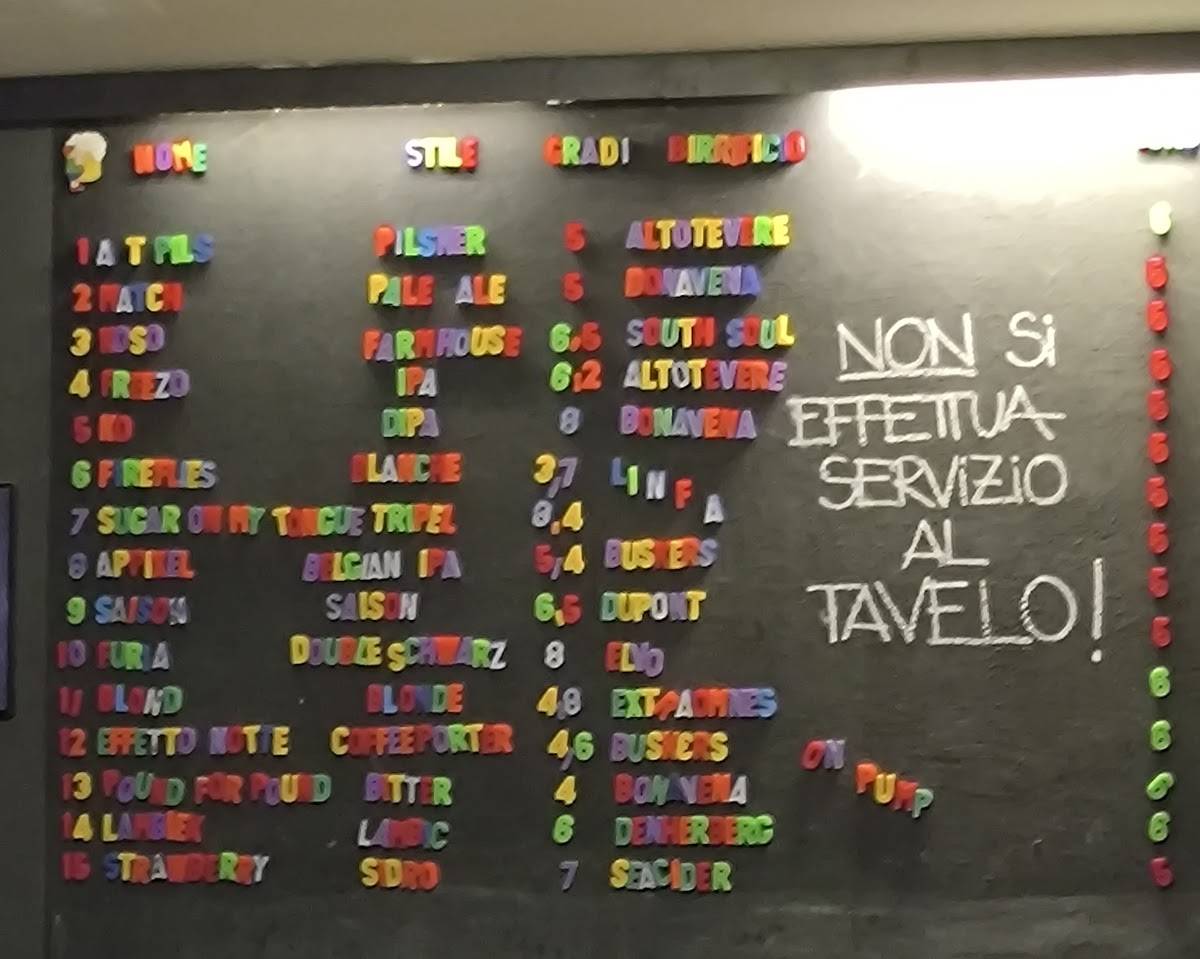 NOME STILE GRADI BIRRIFICIO
1 A T PILS PILSNER 5 ALTOTEVERE 6
2 MATCH PALE ALE 5 BONAVENA 5
3 KOSO FARMHOUSE 6,5 SOUTH SOUL 5
4 FREEZO IPA 6,2 ALTOTEVERE 5
5 KO DIPA 8 BONAVENA 5
6 FIREFLIES BLANCHE 3,7 LINFA 5
7 SUGAR ON MY TONGUE TRIPEL 8,4 5
8 APPIXEL BELGIAN IPA 5,4 BUSKERS 5
9 SAISON SAISON 6,5 DUPONT 5
10 FURIA DOUBLE SCHWARZ 8 ELVO 5
11 BLOND BLONDE 4,8 EXTRAOMNES 6
12 EFFETTO NOTTE COFFEE PORTER 4,6 BUSKERS ON PUMP 6
13 POUND FOR POUND BITTER 4 BONAVENA 6
14 LAMBIEK LAMBIC 6 DENHERBERG 6
15 STRAWBERRY SIDRO 7 SEACIDER 5
NON Si
EFFETTUA
SERViZiO
AL
TAVELO!